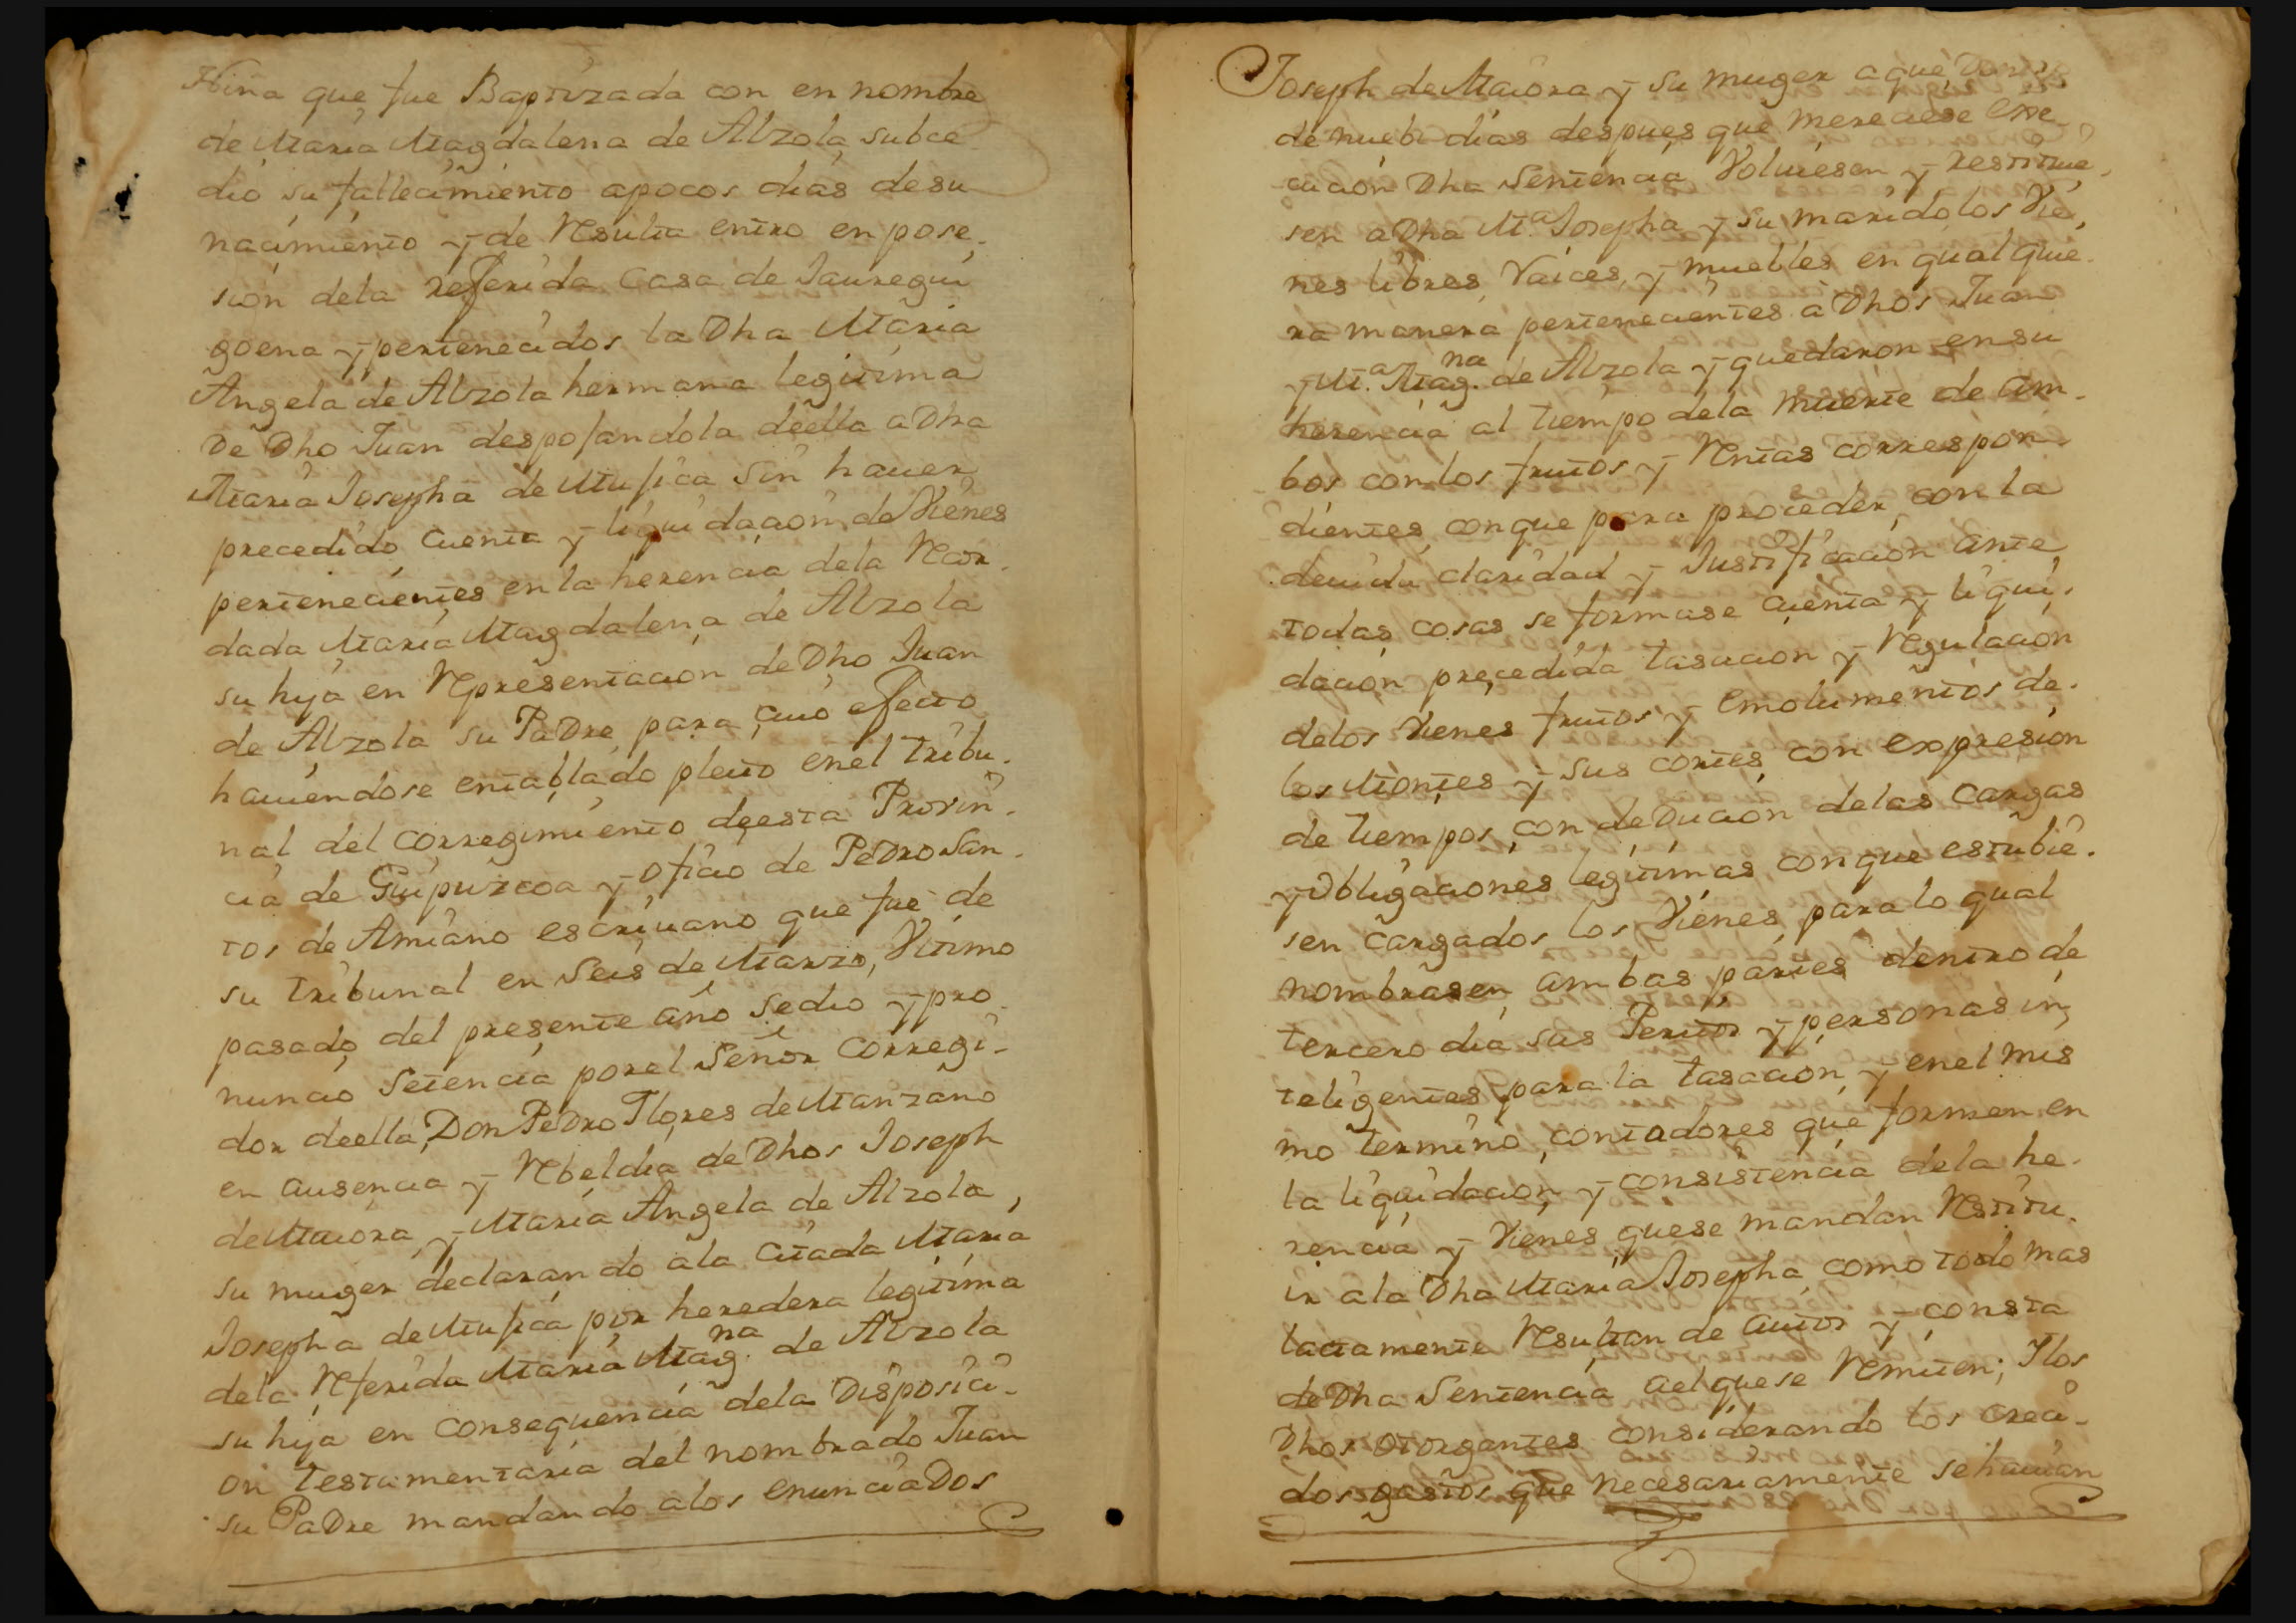 Niña que fue Baptizada con en nombre
de Maria Magdalena de Alzola subce
dio su fallecimiento apocos dias de su
nacimiento y de Resulta entro en pose-
sion dela referida Casa de Jauregui
goena y pertenecidos la Dha Maria
Angela de Alzola hermana legitima
De Dho Juan despojandola deella a Dha
Maria Josepha de Mujica sin haver
precedido cuenta y liquidacion de Vienes
pertenecientes en la herencia dela Recor-
dada Maria Magdalena de Alzola
su hija en Representacion de Dho Juan
de Alzola su Padre para cuio efecto
haviendose entablado pleito enel tribu-
nal del corregimiento deesta Provin-
cia de Guipuzcoa y oficio de Pedro San-
tos de Amiano escrivano que fue de
su tribunal en Seis de Marzo, Vltimo
pasado del presente año sedio y pro-
nuncio Setencia porel Señor Corregi-
dor deella Don Pedro Flores de Manzano
en ausencia y Rebeldia de Dhos Joseph
de Maiora y Maria Angela de Alzola,
su muger declarando ala Citada Maria
Josepha de Mujica por heredera legitima
dela Referida Maria Mag.na de Alzola
su hija en consequencia dela Disposici-
on testamentaria del nombrado Juan
su Padre mandando alos enunciados
Joseph de Maiora y su muger a que
de nueb dias despues que mereciese exe-
cucion Dha Sentencia Volviesen y restitue-
sen a Dha M.a Josepha y su marido los Vie-
nes libres, Raices, y muebles en qualquie-
ra manera pertenecientes à Dhos Juan
y M.a Mag.na de Alzola y quedaron en su
herencia al tiempo dela muerte de am-
bos con los frutos y Rentas correspon-
dientes, con que para proceder, con la
devida claridad y Justificacion ante
todas cosas se formase cuenta y liqui-
dacion precedida tasacion y Regulacion
delos Vienes frutos y emolumentos de-
los Montes y sus cortes con expresion
de tiempos, con deDucion delas Cargas
y Obligaciones legitimas con que estubie-
sen cargados los Vienes, para lo qual
nombrasen ambas partes dentro de
tercero dia sus Peritos y personas in-
teligentes para la tasacion, y enel mis
mo termino, contadores que formen en
la liquidacion y consistencia dela he-
rencia y Vienes quese mandan Restitu-
ir ala Dha Maria Josepha, como todo mas
latamente Resultan de autos y consta
de Dha Sentencia aelquese Remiten; Ylos
Dhos otorgantes considerando los creci-
dos gastos que necesariamente se havian